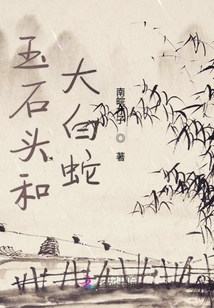 玉石头和
大白蛇
◎著